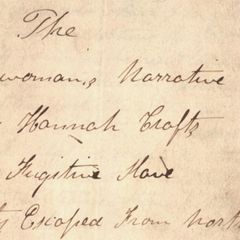 The
woman's Narrative
Hannah Crafts
Fugitive Slave
Escaped From North